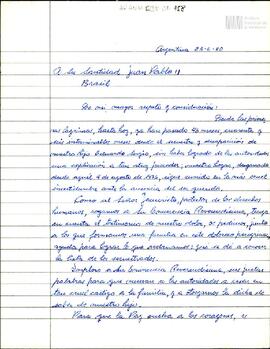 Argentina 23-6-80
A su Santidad Juan Pablo II
Brasil
De mi mayor respeto y consideración:
Desde las primeras
lágrimas, hasta hoy, ya han pasado 46 meses, cuarenta y
seis interminables meses desde el secuestro y desaparición de
nuestro hijo Eduardo Sergio, sin haber logrado de las autoridades
una explicación a tan atroz proceder, nuestro hogar, desgarrado
desde aquel 4 de agosto de 1976, sigue sumido en la más cruel
incertidumbre ante la ausencia del ser querido.
Como el Señor Jesucristo, protector de los derechos
humanos, rogamos a Su Eminencia Reverendísima, tenga
en cuenta el testimonio de nuestro dolor, si pedimos, junto
a los que formamos una familia en este doloroso peregrinar,
ayuda para lograr lo que anhelamos: que se dé a conocer
la lista de los secuestrados.
Imploro a Su Eminencia Reverendísima, sus justas
palabras para que muevan a las autoridades a cesar en
tan cruel castigo a la familia, y a otorgarnos la dicha de
saber de nuestro hijo.
Para que la Paz vuelva a los corazones, y